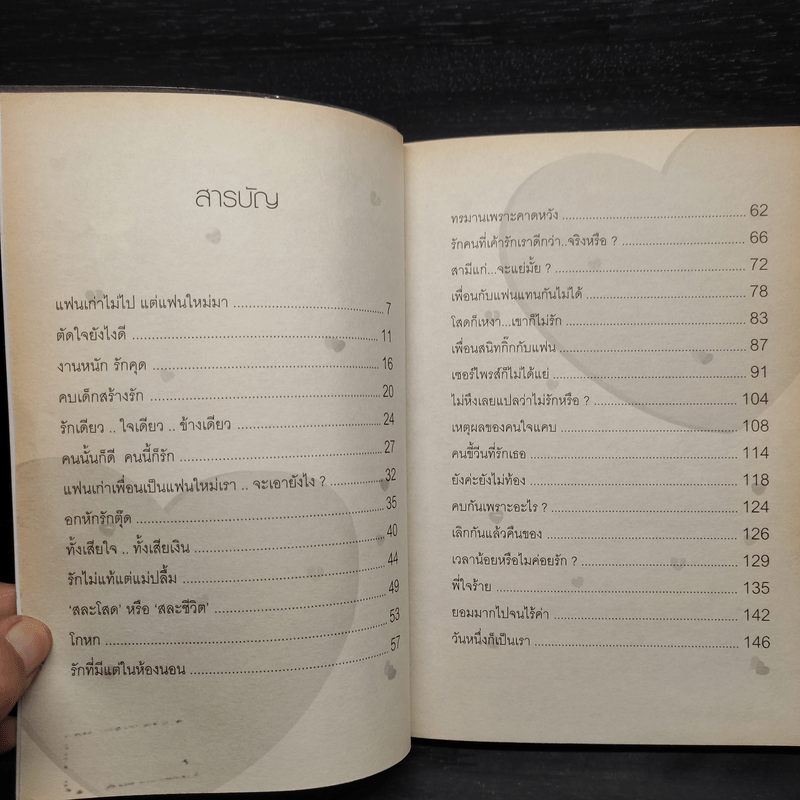 สารบัญ
แฟนเก่าไม่ไป แต่แฟนใหม่มา ........ 7
ตัดใจยังไงดี ........ 11
งานหนัก รักคุด ........ 16
คบเด็กสร้างรัก ........ 20
รักเดียว .. ใจเดียว .. ข้างเดียว ........ 24
คนนั้นก็ดี คนนี้ก็รัก ........ 27
แฟนเก่าเพื่อนเป็นแฟนใหม่เรา .. จะเอายังไง ? ........ 32
อกหักรักตุ๊ด ........ 35
ทั้งเสียใจ .. ทั้งเสียเงิน ........ 40
รักไม่แท้แต่แม่ปลื้ม ........ 44
'สละโสด' หรือ 'สละชีวิต' ........ 49
โกหก ........ 53
รักที่มีแต่ในห้องนอน ........ 57
ทรมานเพราะคาดหวัง ........ 62
รักคนที่เค้ารักเราดีกว่า..จริงหรือ ? ........ 66
สามีแก่...จะแย่มั้ย ? ........ 72
เพื่อนกับแฟนแทนกันไม่ได้ ........ 78
โสดก็เหงา...เขาก็ไม่รัก ........ 83
เพื่อนสนิทกิ๊กกับแฟน ........ 87
เซอร์ไพรส์ก็ไม่ได้แย่ ........ 91
ไม่หึงเลยแปลว่าไม่รักหรือ ? ........ 104
เหตุผลของคนใจแคบ ........ 108
คนขี้วีนที่รักเธอ ........ 114
ยังค่ะยังไม่ท้อง ........ 118
คบกันเพราะอะไร ? ........ 124
เลิกกันแล้วคืนของ ........ 126
เวลาน้อยหรือไม่ค่อยรัก ? ........ 129
พี่ใจร้าย ........ 135
ยอมมากไปจนไร้ค่า ........ 142
วันหนึ่งก็เป็นเรา ........ 146